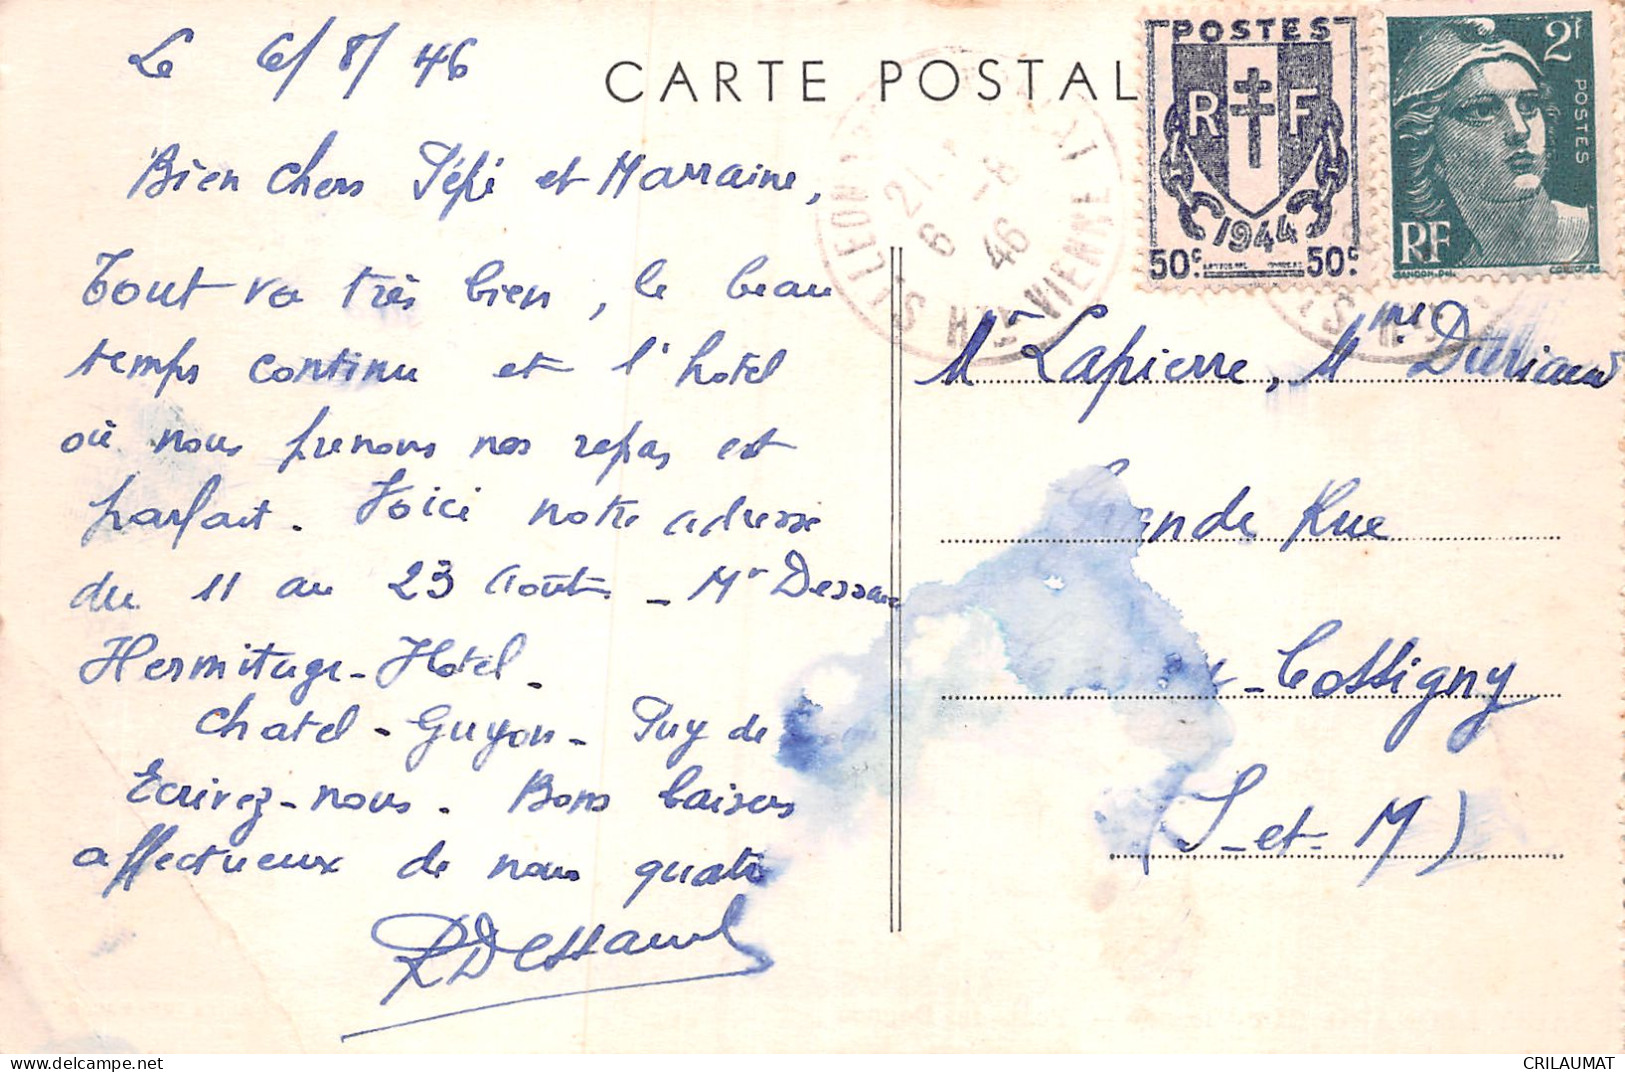 Le 6/8/46
CARTE POSTAL
POSTES
R F
1944
50c 50c
2F
POSTES
RF
ST LEONARD
21
6 -8
46
HTE VIENNE
Bien chers Pépé et Marraine,
Tout va très bien, le beau
temps continu et l'hotel
où nous prenons nos repas est
parfait. Voici notre adresse
du 11 au 23 Août - Mr
Hermitage-Hotel-
Chatel-Guyon- Puy de
Ecrivez-nous. Bons baisers
affectueux de nous quatre
Mr Lapierre, Mme
Grande Rue
-Cossigny
(S-et-M)
CRILAUMAT